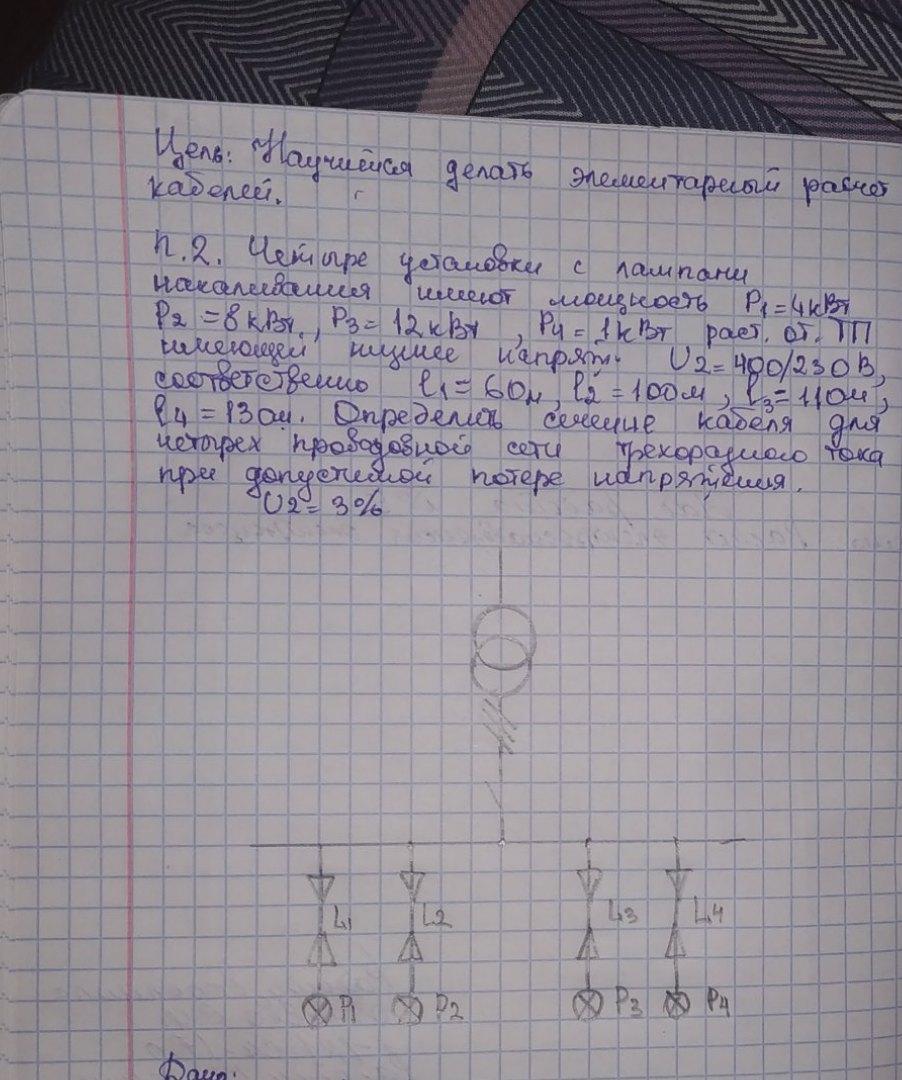 Цель: Научиться делать элементарный расчет
кабелей.
п.2. Четыре установки с лампами
накаливания имеют мощность P1=4кВт
P2=8кВт, P3=12кВт, P4=1кВт расп. от. ТП
имеющей низшее напряж. U2=400/230В,
соответственно l1=60м, l2=100м, l3=110м,
l4=130м. Определить сечение кабеля для
четырех проводовной сети трехфазного тока
при допустимой потере напряжения.
U2=3%
L1 L2 L3 L4
P1 P2 P3 P4
Дано: